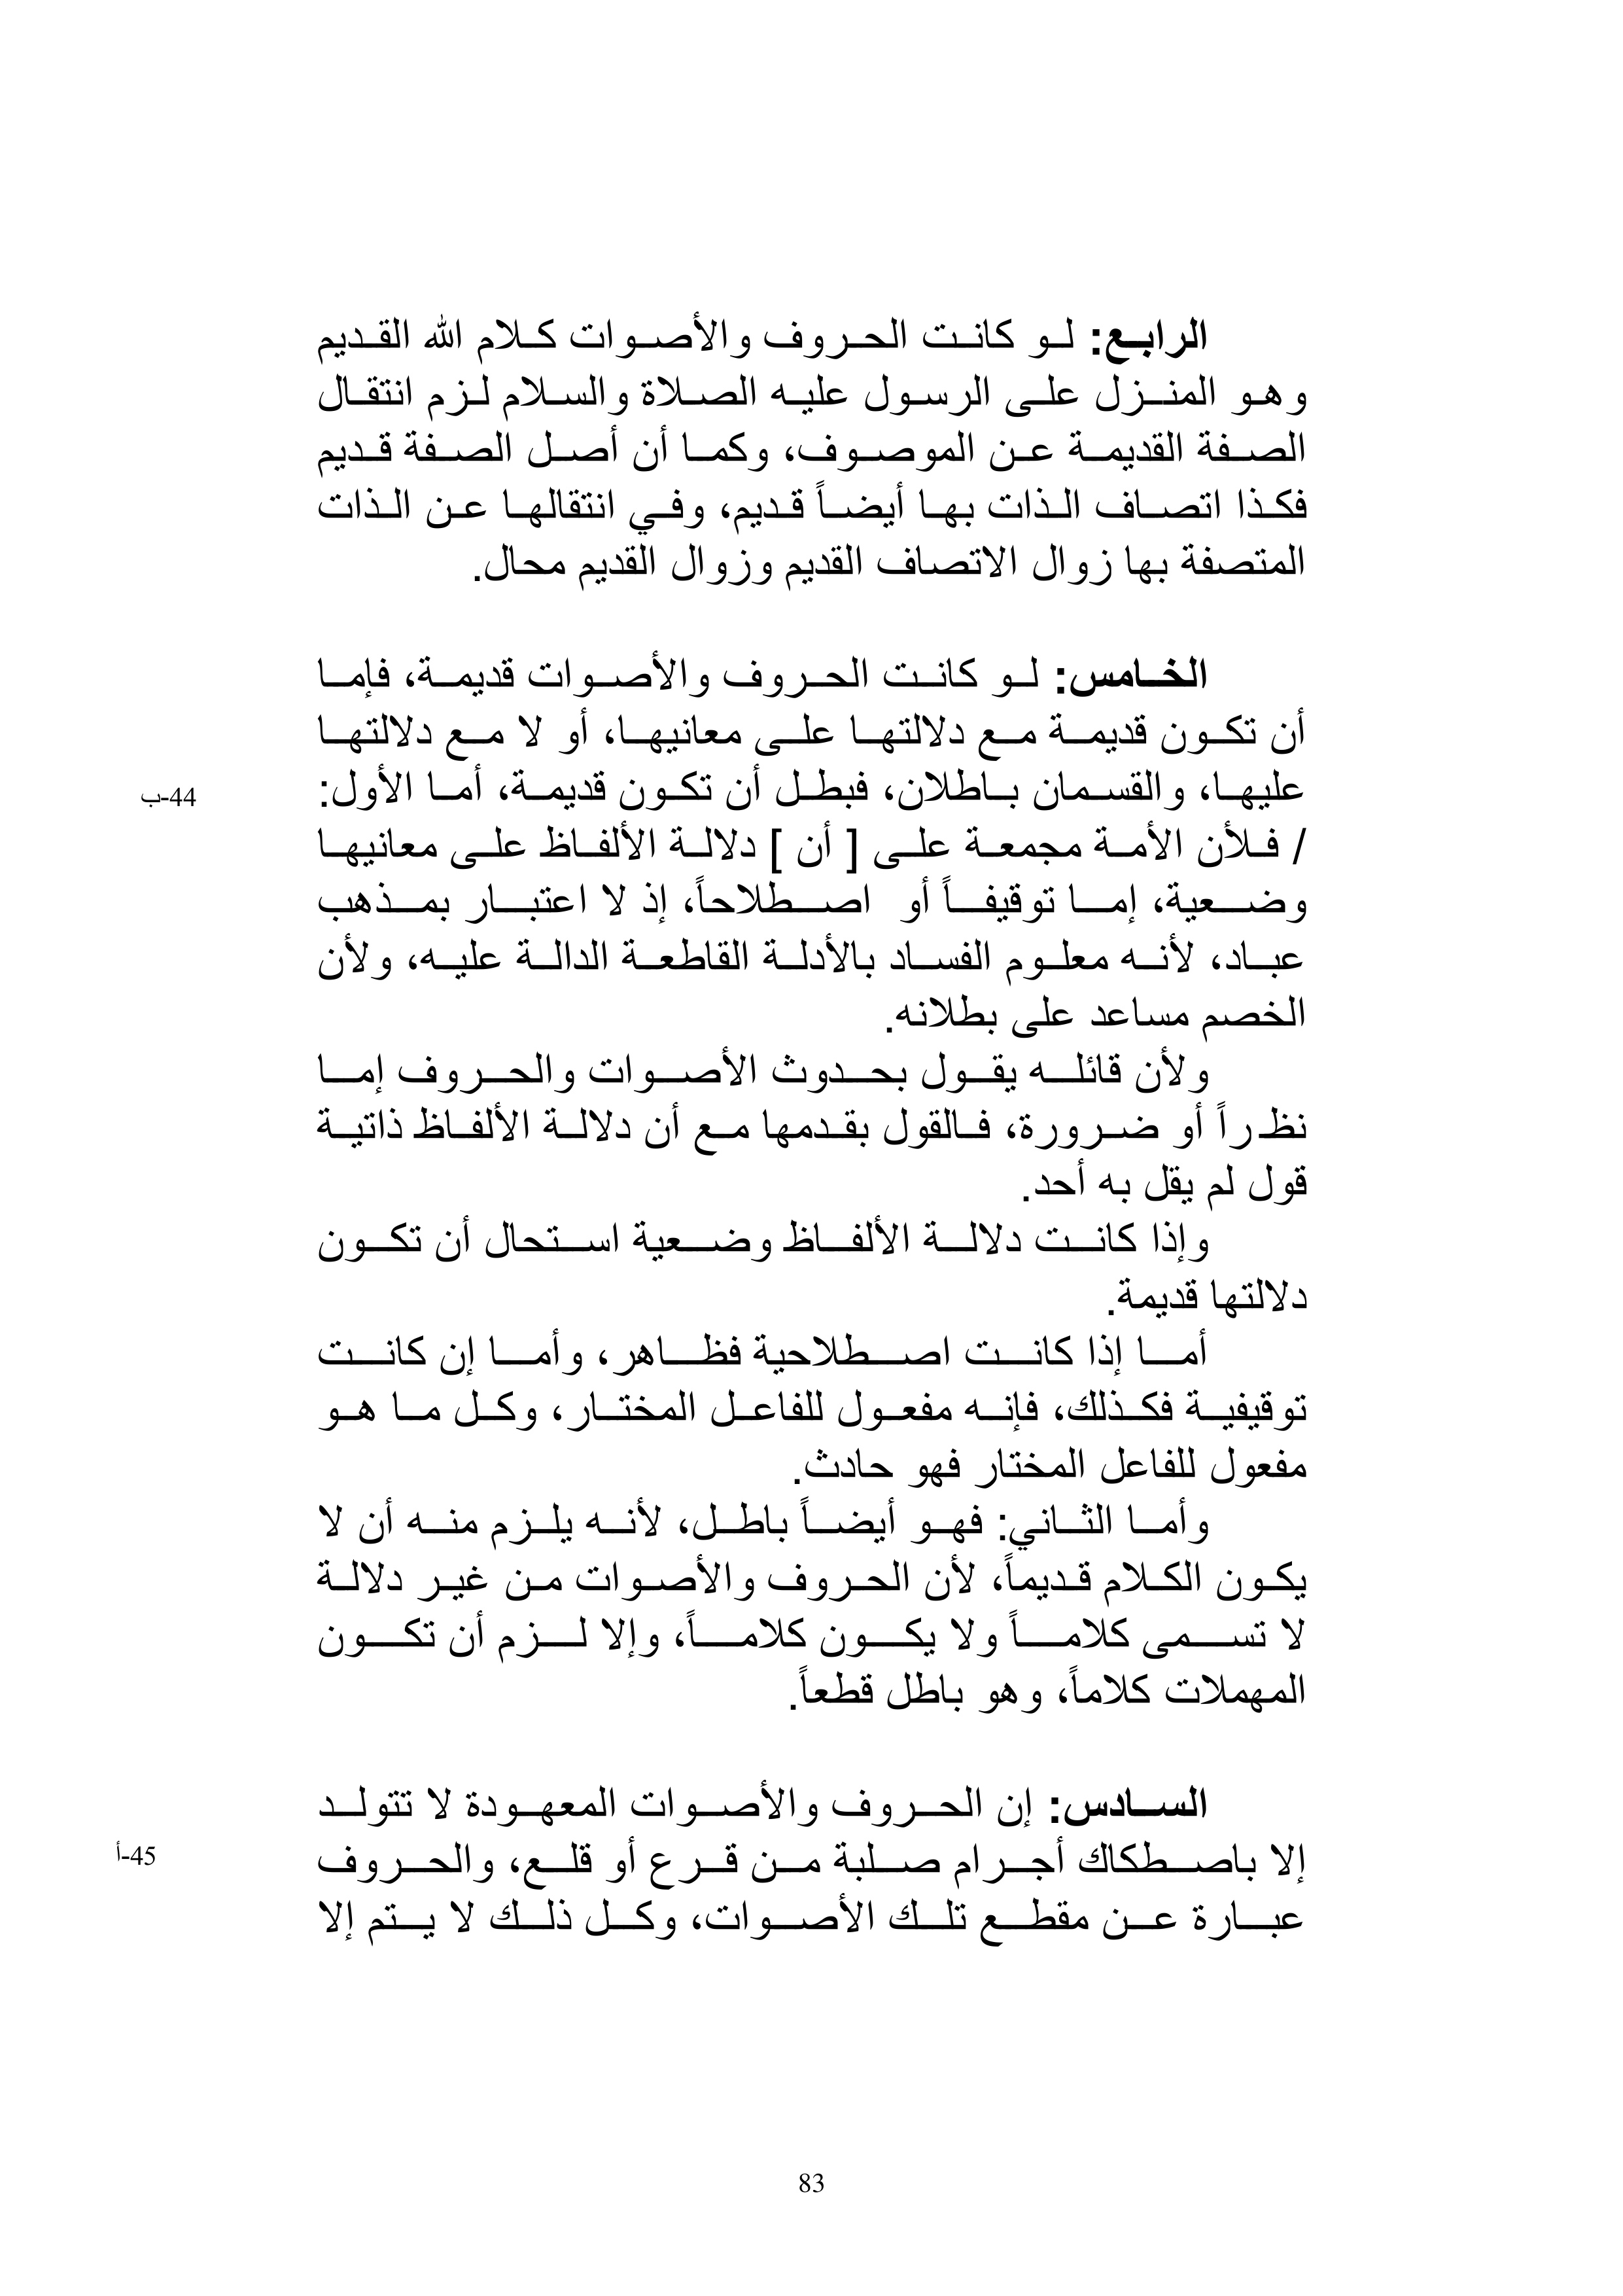 الرابع: لو كانت الحروف والأصوات كلام الله القديم
وهو المنزل على الرسول عليه الصلاة والسلام لزم انتقال
الصفة القديمة عن الموصوف، وكما أن أصل الصفة قديم
فكذا اتصاف الذات بها أيضاً قديم، وفي انتقالها عن الذات
المتصفة بها زوال الاتصاف القديم وزوال القديم محال.
الخامس: لو كانت الحروف والأصوات قديمة، فإما
أن تكون قديمة مع دلالتها على معانيها، أو لا مع دلالتها
عليها، والقسمان باطلان، فبطل أن تكون قديمة، أما الأول:
44-ب
/ فلأن الأمة مجمعة على [ أن ] دلالة الألفاظ على معانيها
وضعية، إما توقيفاً أو اصطلاحاً، إذ لا اعتبار بمذهب
عباد، لأنه معلوم الفساد بالأدلة القاطعة الدالة عليه، ولأن
الخصم مساعد على بطلانه.
ولأن قائله يقول بحدوث الأصوات والحروف إما
نظراً أو ضرورة، فالقول بقدمها مع أن دلالة الألفاظ ذاتية
قول لم يقل به أحد.
وإذا كانت دلالة الألفاظ وضعية استحال أن تكون
دلالتها قديمة.
أما إذا كانت اصطلاحية فظاهر، وأما إن كانت
توقيفية فكذلك، فإنه مفعول للفاعل المختار، وكل ما هو
مفعول للفاعل المختار فهو حادث.
وأما الثاني: فهو أيضاً باطل، لأنه يلزم منه أن لا
يكون الكلام قديماً، لأن الحروف والأصوات من غير دلالة
لا تسمى كلاماً ولا يكون كلاماً، وإلا لزم أن تكون
المهملات كلاماً، وهو باطل قطعاً.
السادس: إن الحروف والأصوات المعهودة لا تتولد
إلا باصطكاك أجرام صلبة من قرع أو قلع، والحروف
45-أ
عبارة عن مقطع تلك الأصوات، وكل ذلك لا يتم إلا
83